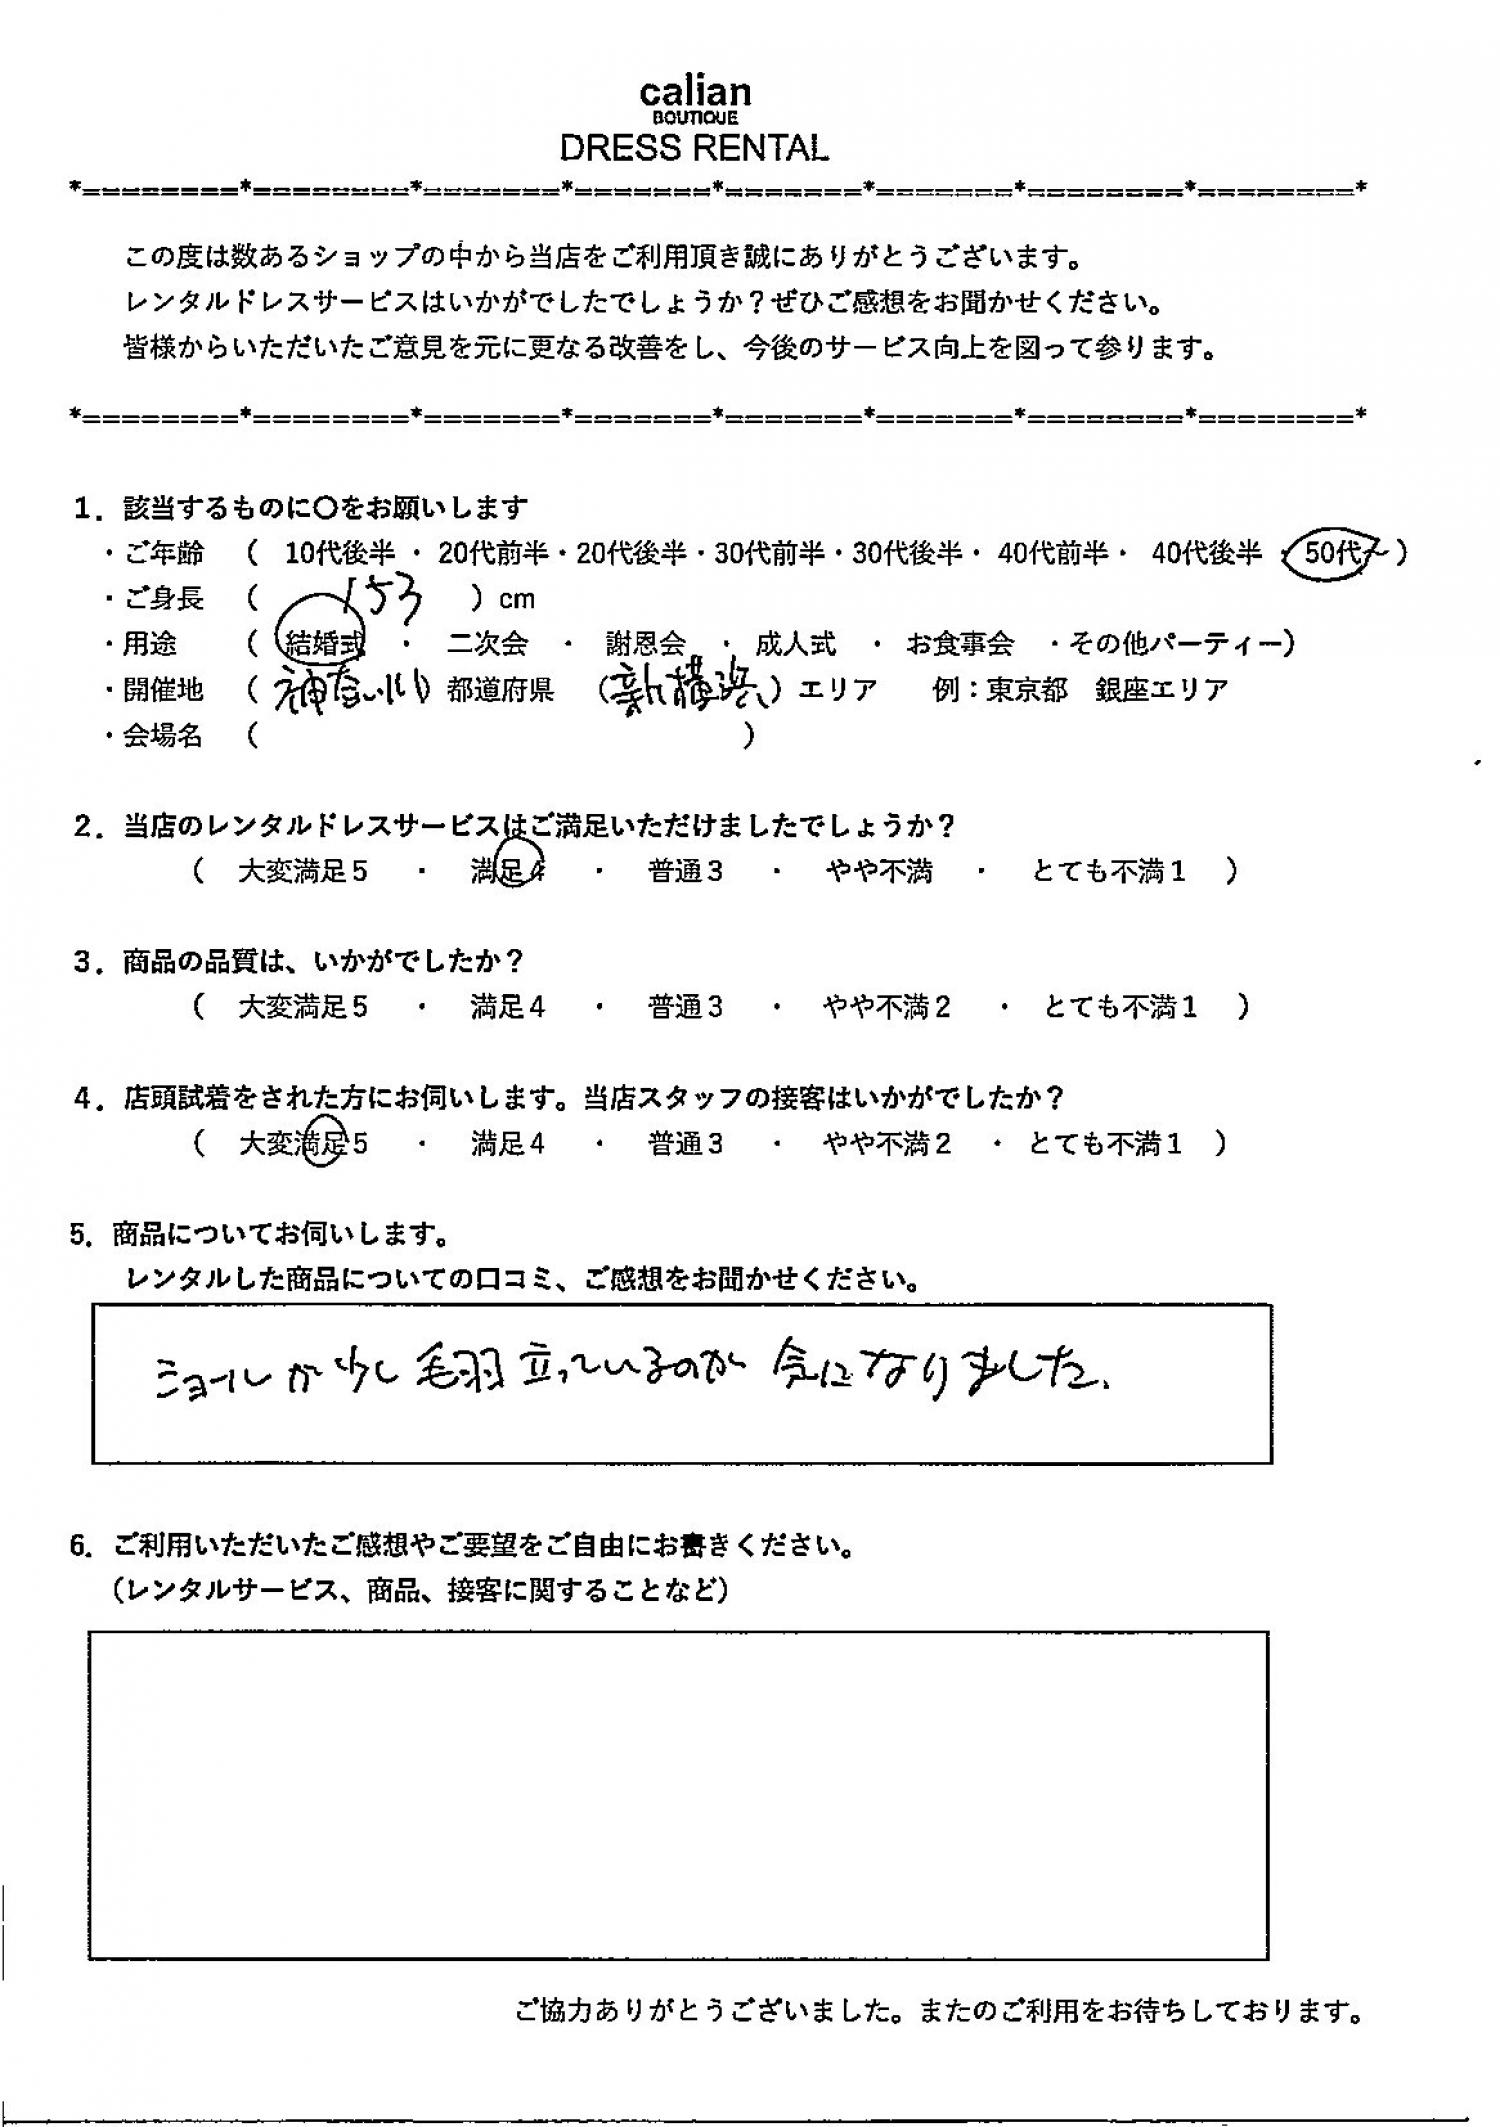 calian
BOUTIQUE
DRESS RENTAL
*========*========*=======*=======*=======*=======*========*========*
この度は数あるショップの中から当店をご利用頂き誠にありがとうございます。
レンタルドレスサービスはいかがでしたでしょうか？ぜひご感想をお聞かせください。
皆様からいただいたご意見を元に更なる改善をし、今後のサービス向上を図って参ります。
*========*========*=======*=======*=======*=======*========*========*
1．該当するものに〇をお願いします
・ご年齢 （ 10代後半 ・ 20代前半・20代後半・30代前半・30代後半・ 40代前半・ 40代後半 ・ 50代～ ）
・ご身長 （ 153 ）cm
・用途 （ 結婚式 ・ 二次会 ・ 謝恩会 ・ 成人式 ・ お食事会 ・その他パーティー）
・開催地 （ 神奈川 ）都道府県 （新横浜）エリア 例：東京都 銀座エリア
・会場名 （ ）
2．当店のレンタルドレスサービスはご満足いただけましたでしょうか？
（ 大変満足５ ・ 満足４ ・ 普通３ ・ やや不満 ・ とても不満１ ）
3．商品の品質は、いかがでしたか？
（ 大変満足５ ・ 満足４ ・ 普通３ ・ やや不満２ ・ とても不満１ ）
4．店頭試着をされた方にお伺いします。当店スタッフの接客はいかがでしたか？
（ 大変満足５ ・ 満足４ ・ 普通３ ・ やや不満２ ・ とても不満１ ）
5．商品についてお伺いします。
レンタルした商品についての口コミ、ご感想をお聞かせください。
ショールが少し毛羽立っているのが気になりました。
6．ご利用いただいたご感想やご要望をご自由にお書きください。
（レンタルサービス、商品、接客に関することなど）
ご協力ありがとうございました。またのご利用をお待ちしております。